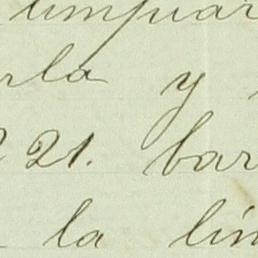 limpiar
rla y
221. bar
la lin